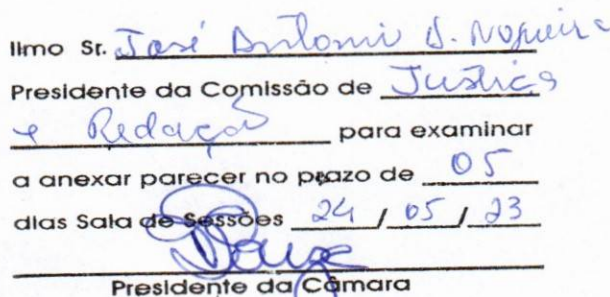 Ilmo Sr. José Antonio S. Nogueira
Presidente da Comissão de Justiça
e Redação para examinar
a anexar parecer no prazo de 05
dias Sala de Sessões 24 / 05 / 23
Presidente da Câmara